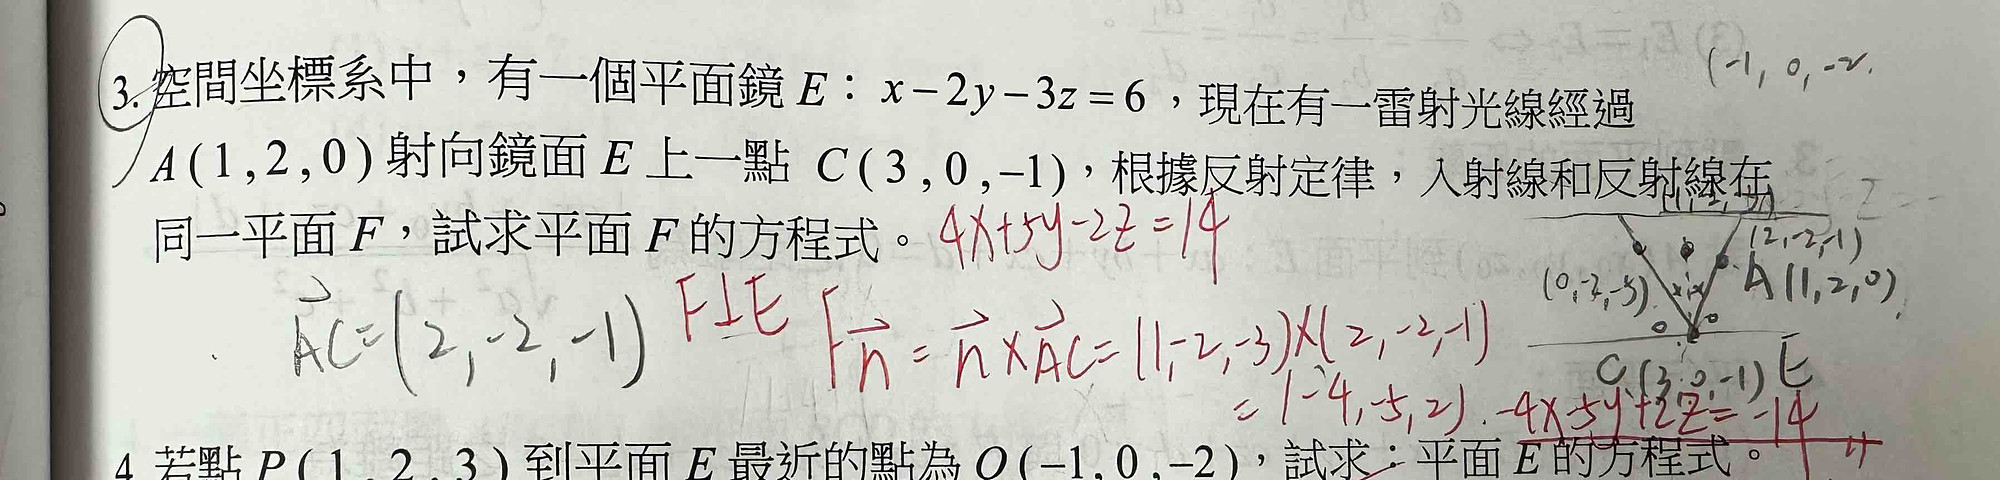 (-1, 0, -2
3. 空間坐標系中，有一個平面鏡 E：x-2y-3z=6，現在有一雷射光線經過
A(1,2,0)射向鏡面 E 上一點 C(3,0,-1)，根據反射定律，入射線和反射線在
同一平面 F，試求平面 F 的方程式。 4x+5y-2z=14
(2,-2,-1)
(0,-2,-5) A(1,2,0)
AC=(2,-2,-1) F⊥E Fn=n×AC=(1,-2,-3)×(2,-2,-1)
C(3,0,-1) E
=(-4,-5,2). -4x-5y+2z=-14
4. 若點 P(1,2,3)到平面 E 最近的點為 O(-1,0,-2)，試求：平面 E 的方程式。